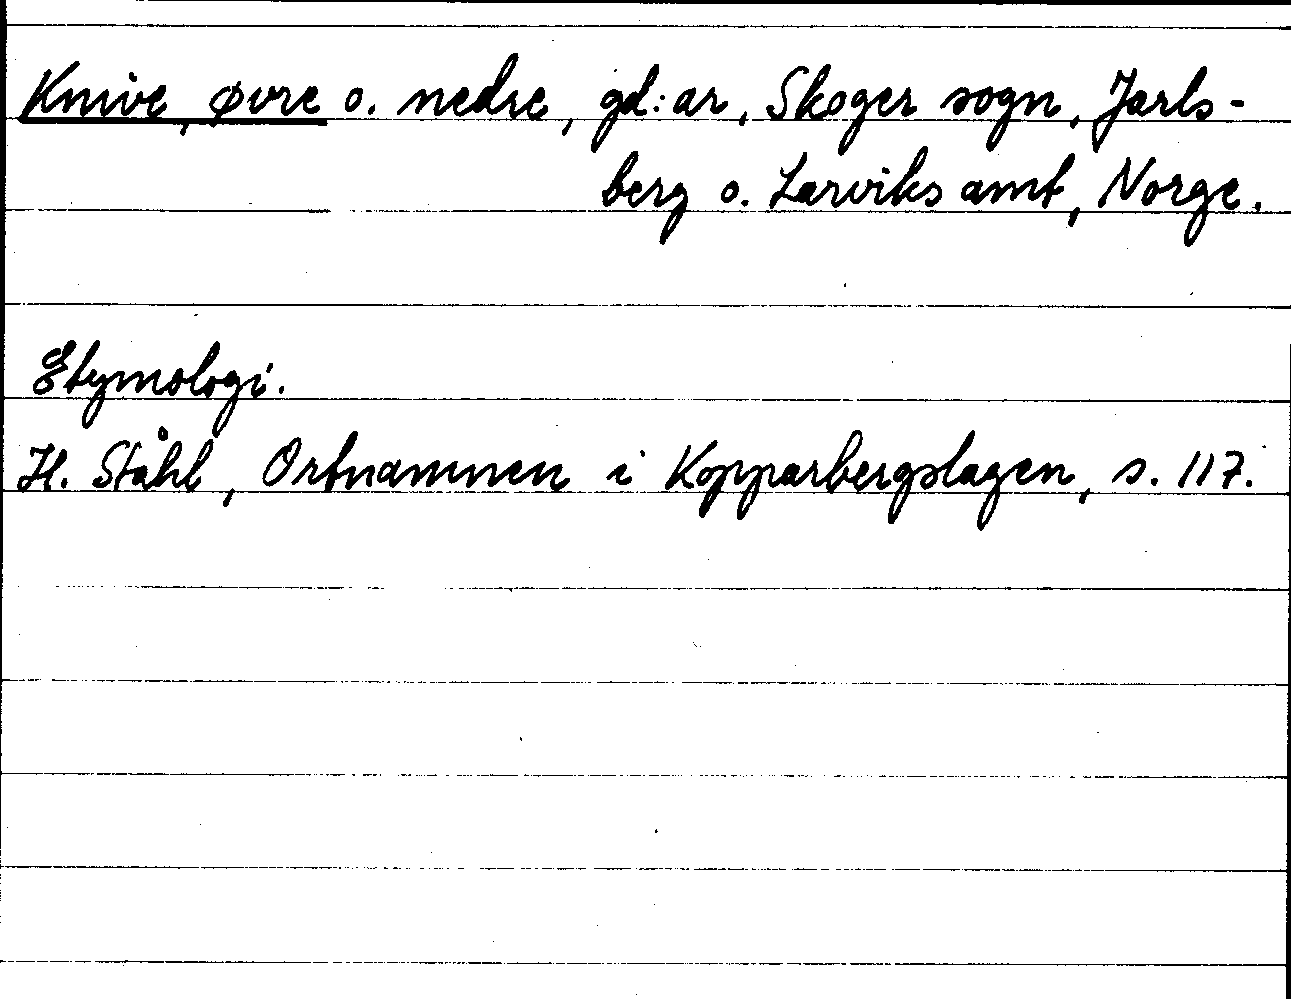 Knive, øvre o. nedre, gd:ar, Skoger sogn, Jarls-
berg o. Larviks amt, Norge.
Etymologi.
H. Ståhl, Ortnamnen i Kopparbergslagen, s. 117.